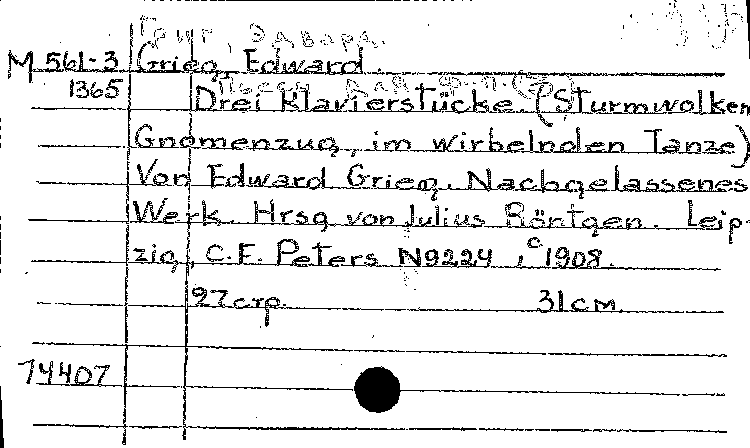 Григ, Эдвард.
M 561-3 Grieg, Edward.
1365 Drei Klavierstücke. (Sturmwolken
Gnomenzug, im wirbelnden Tanze)
Von Edward Grieg. Nachgelassenes
Werk. Hrsg von Julius Röntgen. Leip-
zig, C.F. Peters N9224, c1908.
27 стр. 31 см.
74407